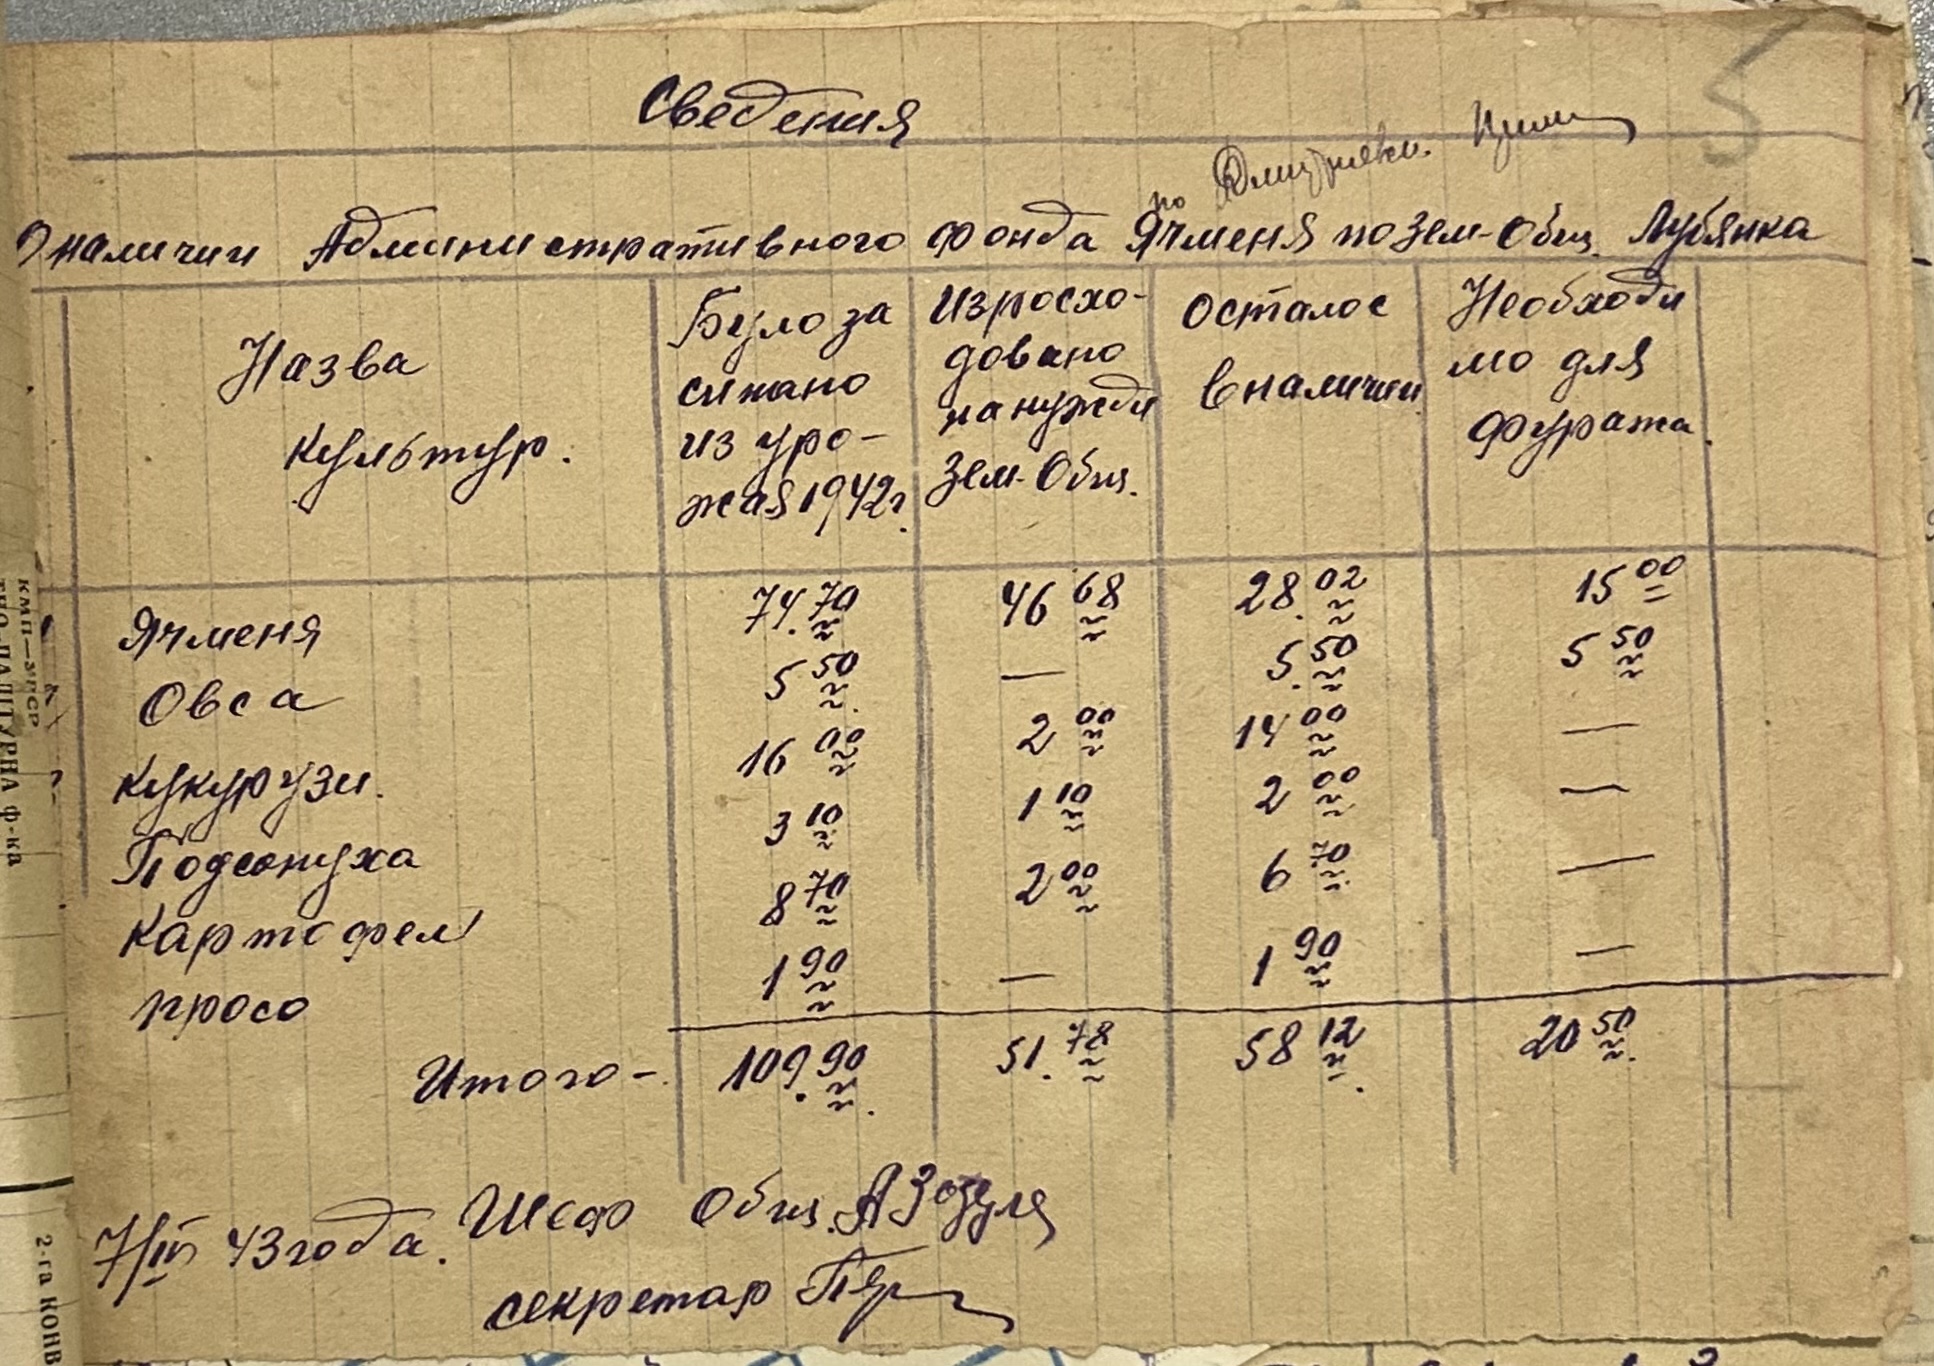 5
Сведения
по Дмитриевск.
О наличии Административного Фонда Ячменя по Зем-Общ. Лубянка
Назва культур.
Було за сипано из уро-жая 1942г.
Изросхо-довано на нужди Зем-Общ.
Осталос в наличии
Необходи мо для фуража.
Ячменя 74.70 46 68 28.02 15 00
Овса 5 50 — 5.50 5 50
Кукурузи. 16 00 2 00 14 00 —
Подсонуха 3 10 1 10 2 00 —
Картофел 8 70 2 00 6 70 —
просо 1 90 — 1 90 —
Итого - 109.90 51.78 58 12 20 50
7/III 43 года. Шеф Общ. А Зозуля
секретар
КМП—ЗРСР
ПАЛІТУРНА Ф-ка
2-га КОНВ